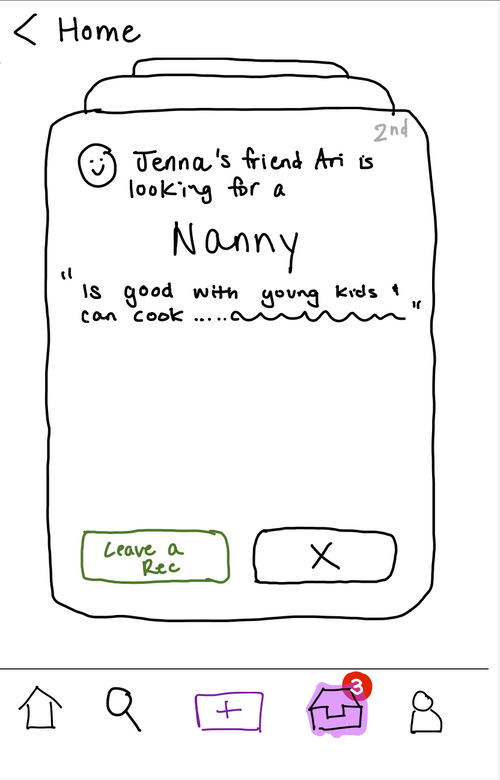 < Home
2nd
Jenna's friend Ari is
looking for a
Nanny
"Is good with young kids +
can cook ....."
Leave a
Rec
X
+
3